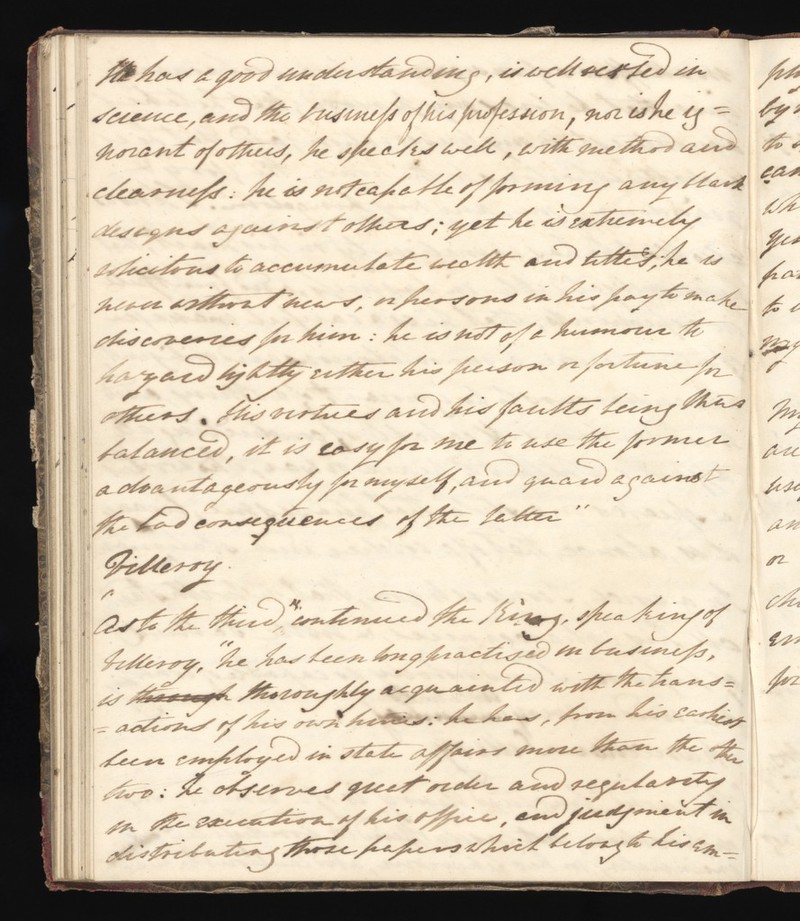 He has a good understanding, is well versed in
science, and the business of his profession, nor is he ig=
norant of others, he speaks well, with method and
clearness: he is not capable of forming any black
designs against others; yet he is extremely
solicitous to accumulate wealth and titles; he is
never without news, or persons in his pay to make
discoveries for him: he is not of a humour to
hazard lightly either his person or fortune for
others. His virtues and his faults being thus
balanced, it is easy for me to use the former
advantageously for myself, and guard against
the bad consequences of the latter"
Villeroy.
"As to the third," continued the King, speaking of
Villeroy, "he has been long practised in business,
is though thoroughly acquainted with the trans=
=actions of his own times: he has, from his earliest
been employed in state affairs more than the other
two: he observes great order and regularity
in the execution of his office, and judgment in
distributing those papers which belong to his em=